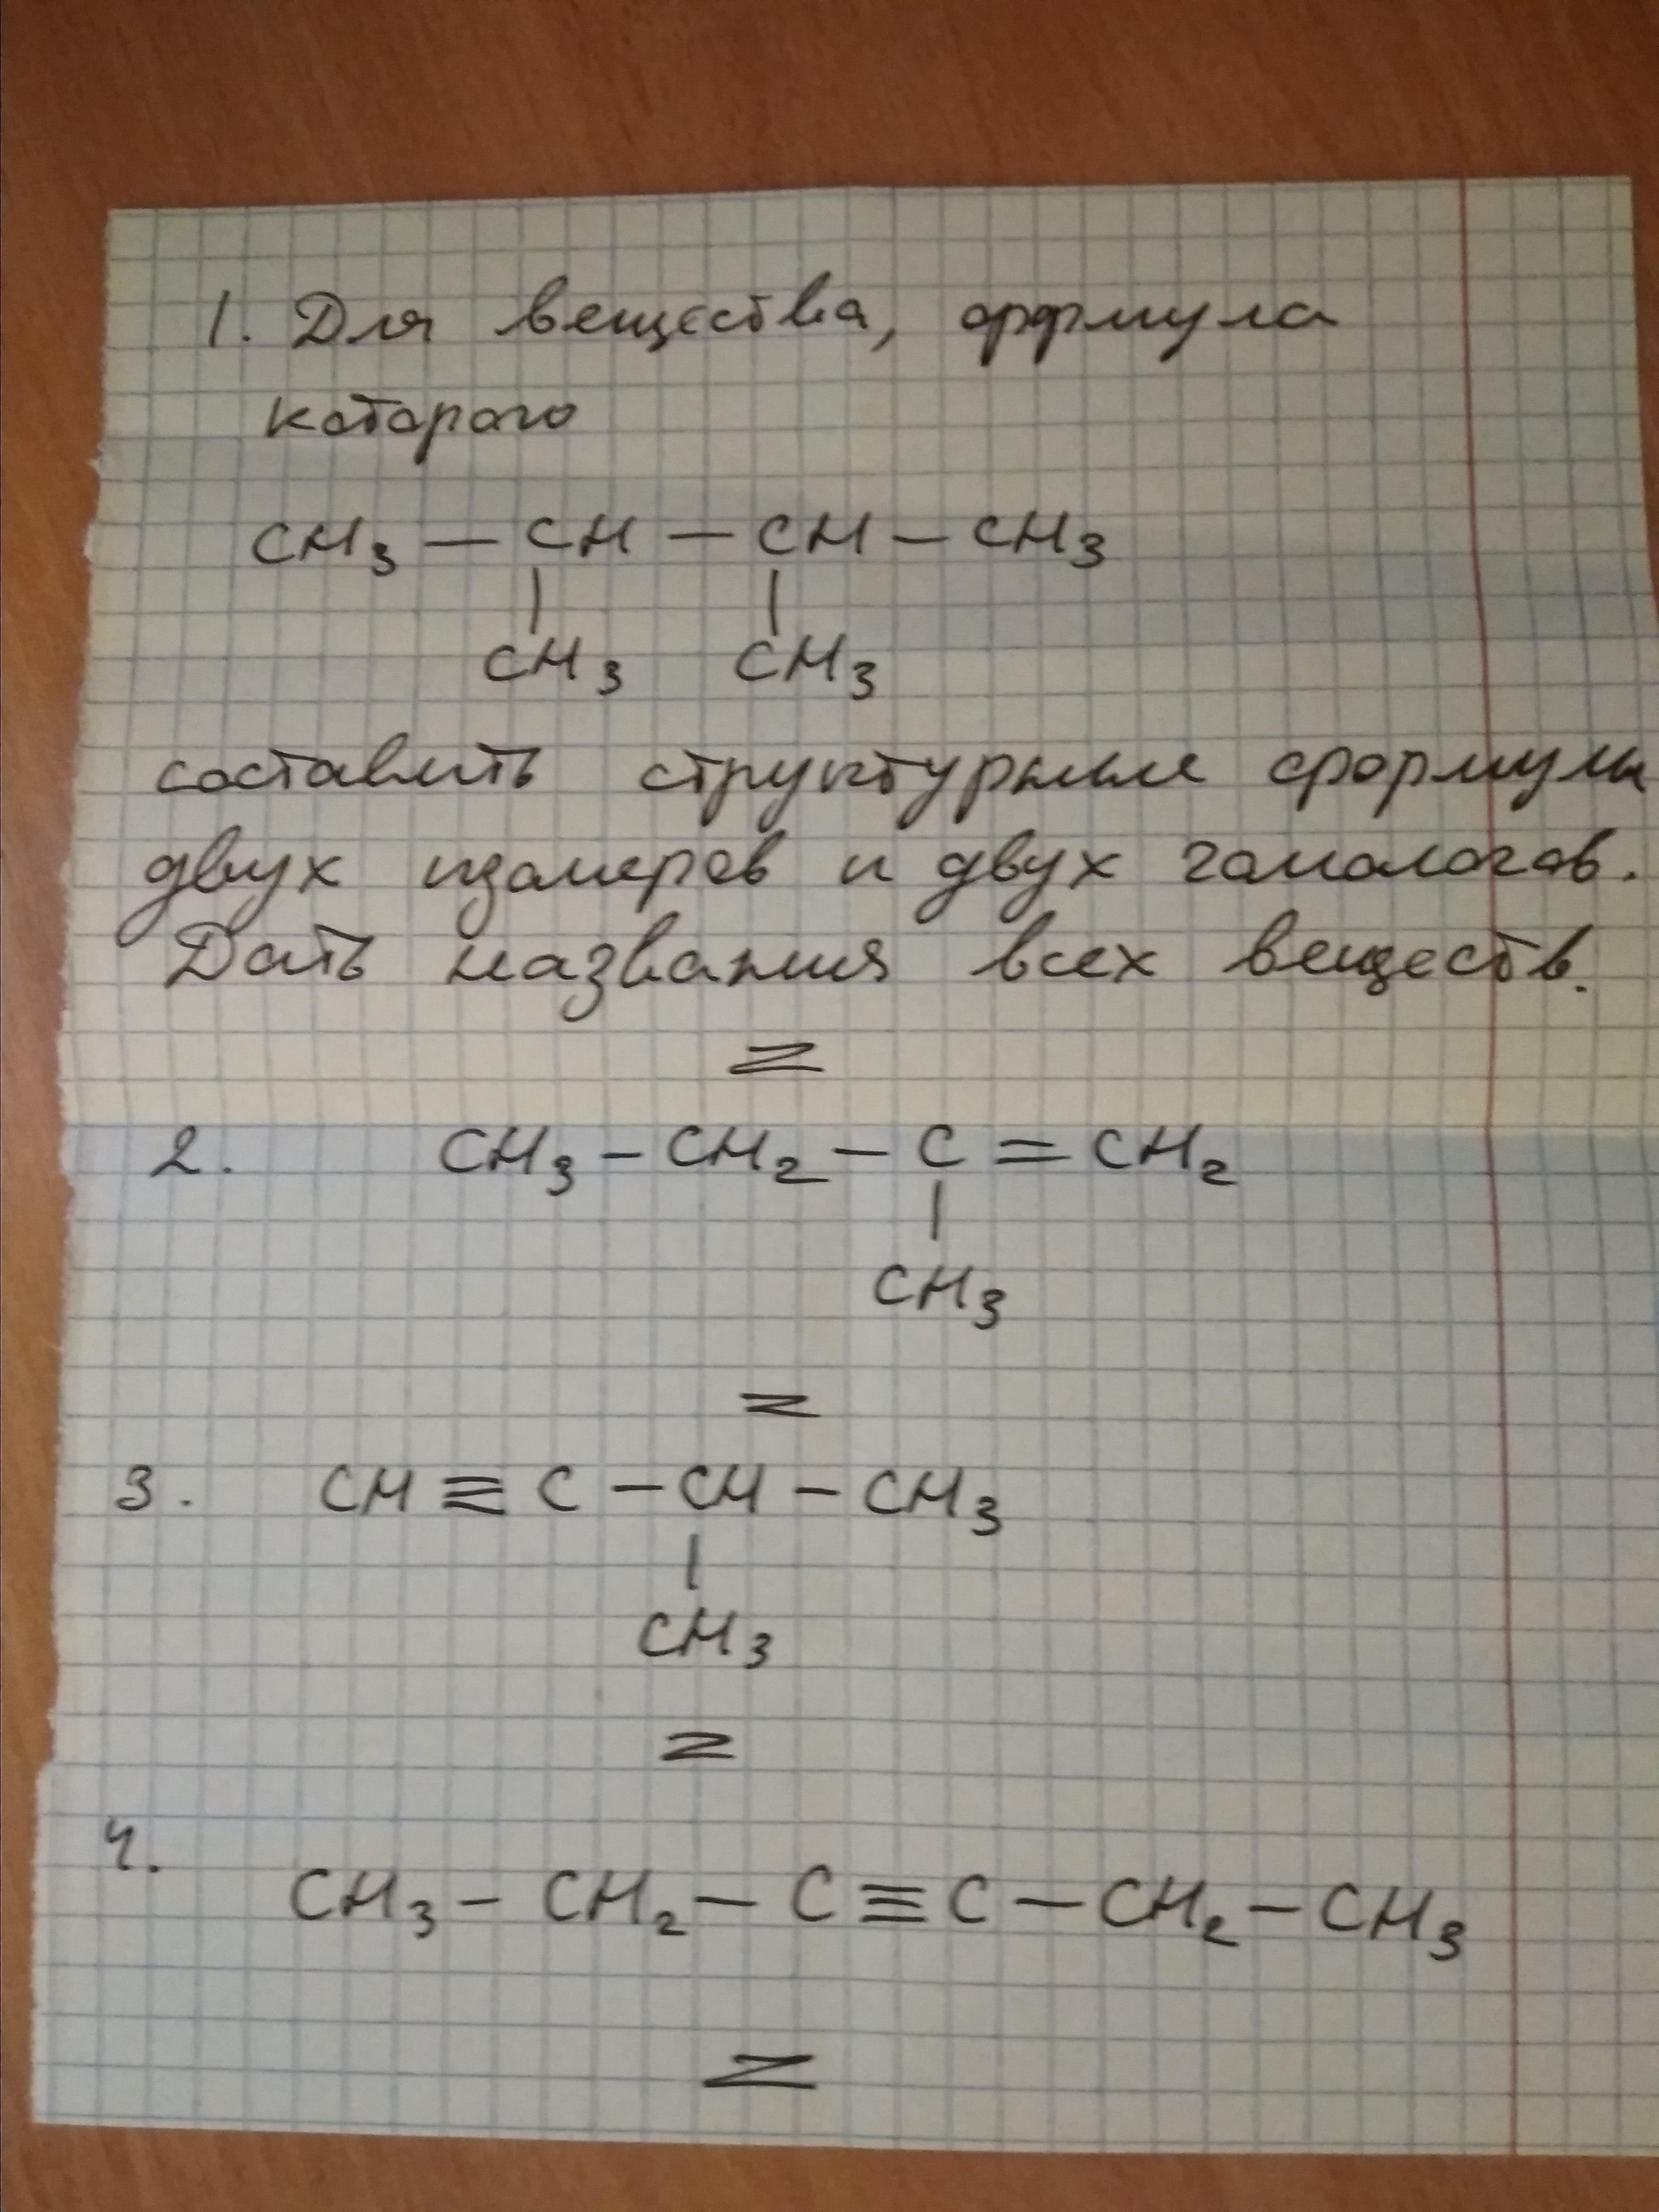 1. Для вещества, формула
которого
CH₃ — CH — CH — CH₃
| |
CH₃ CH₃
составить структурные формулы
двух изомеров и двух гомологов.
Дать названия всех веществ.
2. CH₃ – CH₂ – C = CH₂
|
CH₃
3. CH ≡ C – CH – CH₃
|
CH₃
4.
CH₃ – CH₂ – C ≡ C – CH₂ – CH₃